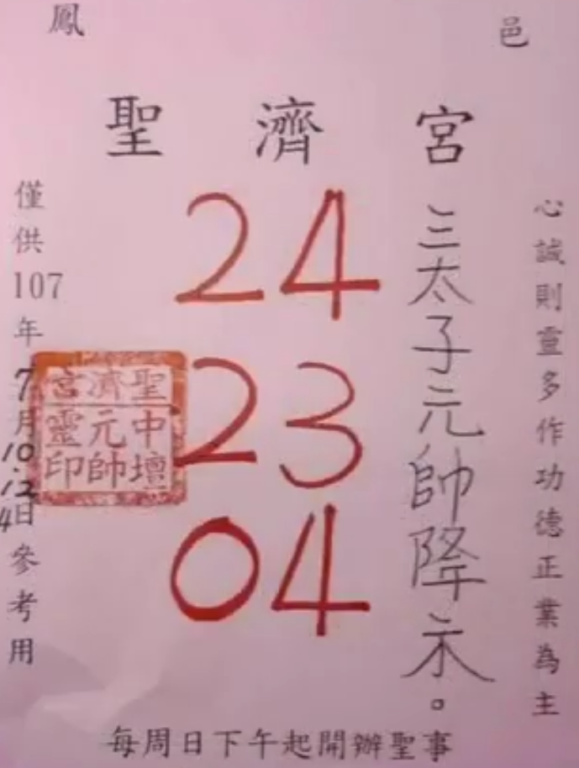 鳳邑
聖濟宮
心誠則靈多作功德正業為主
三太子元帥降示。
24
23
04
聖濟宮
中壇元帥靈印
僅供107年7月10.12日參考用
每周日下午起開辦聖事